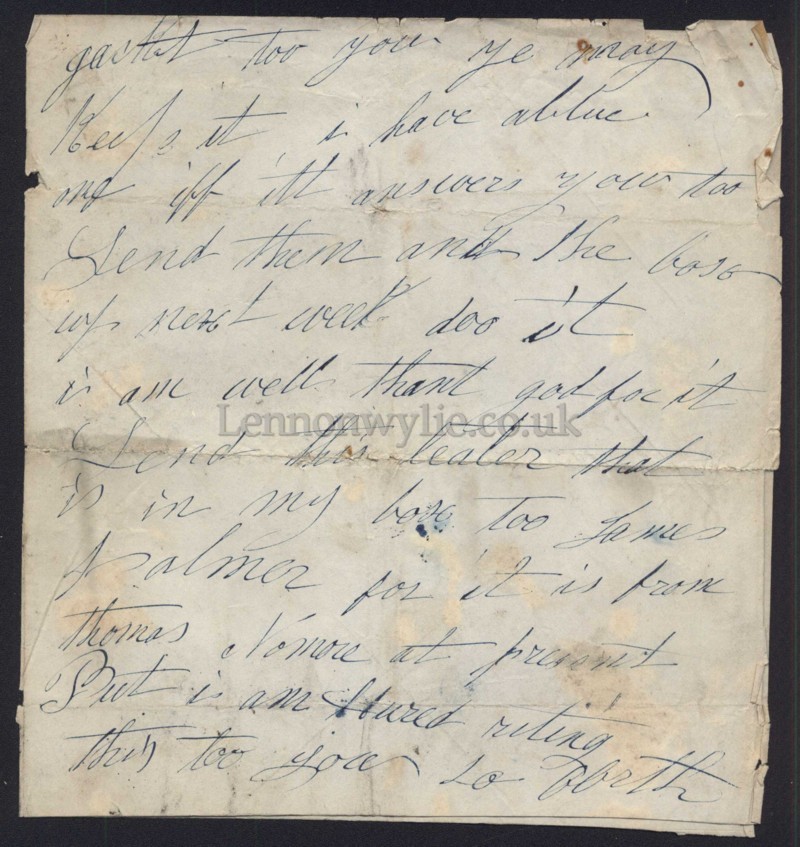 gacket too you ye may
Keep it i have a blue
one iff itt answers you too
Send them and the boxe
up next week doo it
i am well thank god for it
Lennonwylie.co.uk
Send this leater that
is in my boxe too James
Palmer for it is from
thomas No more at present
But i am riting
this too you so